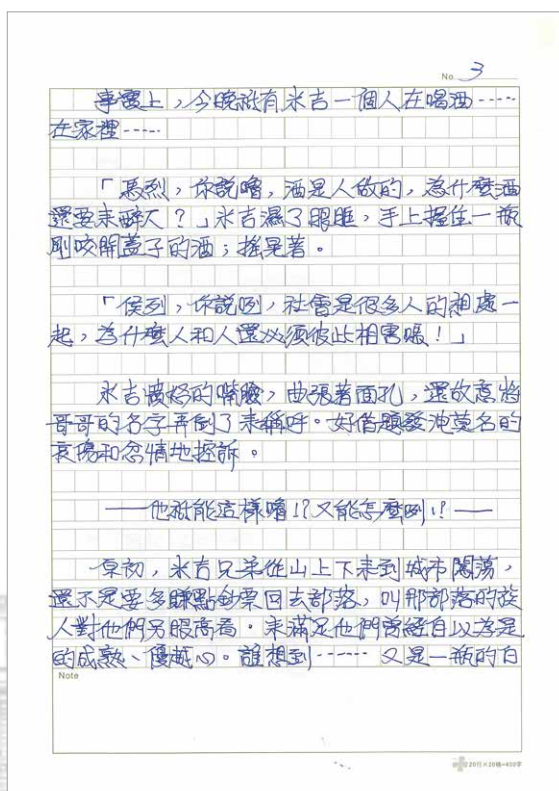 No. 3
事實上，今晚祇有米吉一個人在喝酒……
在家裡……
「惡烈，你說嚕，酒是人做的，為什麼酒
還要來醉人？」米吉濕了眼眶，手上握住一瓶
剛咬開蓋子的酒；搖晃著。
「侯列，你說咧，社會是很多人的相處一
起，為什麼人和人還必須彼此相害嗎！」
米吉的臉，曲張著面孔，還故意將
哥哥的名字弄倒了來稱呼。好借題發洩莫名的
哀傷和忿情地控訴。
——他祇能這樣嚕!?又能怎麼咧!?——
原初，米吉兄弟從山上下來到城市闖蕩，
還不是要多賺點鈔票回去部落，叫那部落的族
人對他們另眼高看。來滿足他們曾經自以為是
的成熟、優越心。誰想到…… 又是一瓶的白
Note
20行×20格=400字